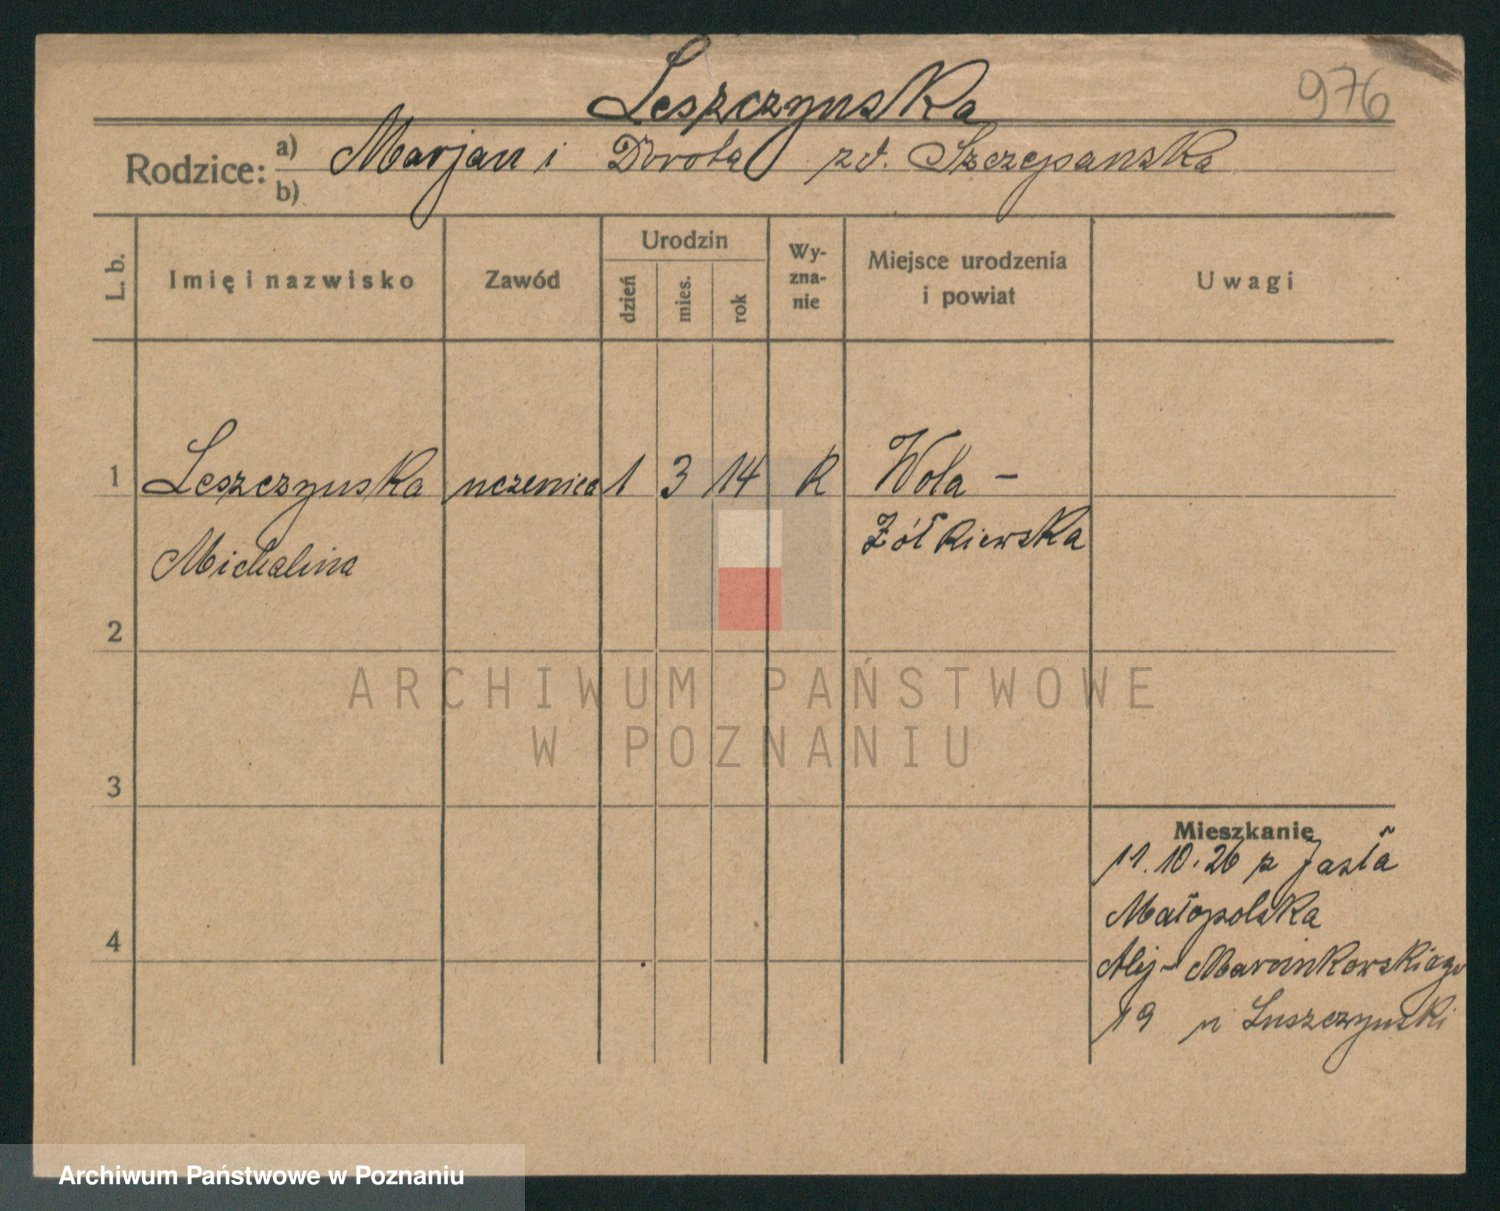 976
Leszczynska
Rodzice: a) Marjan i Dorota zd. Szczepanska
b)
L. b. Imię i nazwisko Zawód Urodzin dzień mies. rok Wy-zna-nie Miejsce urodzenia i powiat Uwagi
1 Leszczynska uczenica 1 3 14 R Wola -
Michalina Żółkiewska
2
ARCHIWUM PAŃSTWOWE
W POZNANIU
3
Mieszkanie
11.10.26 z Jasła
Małopolska
4
Alej- Marcinkowskiego
19 u Luszczynski
Archiwum Państwowe w Poznaniu